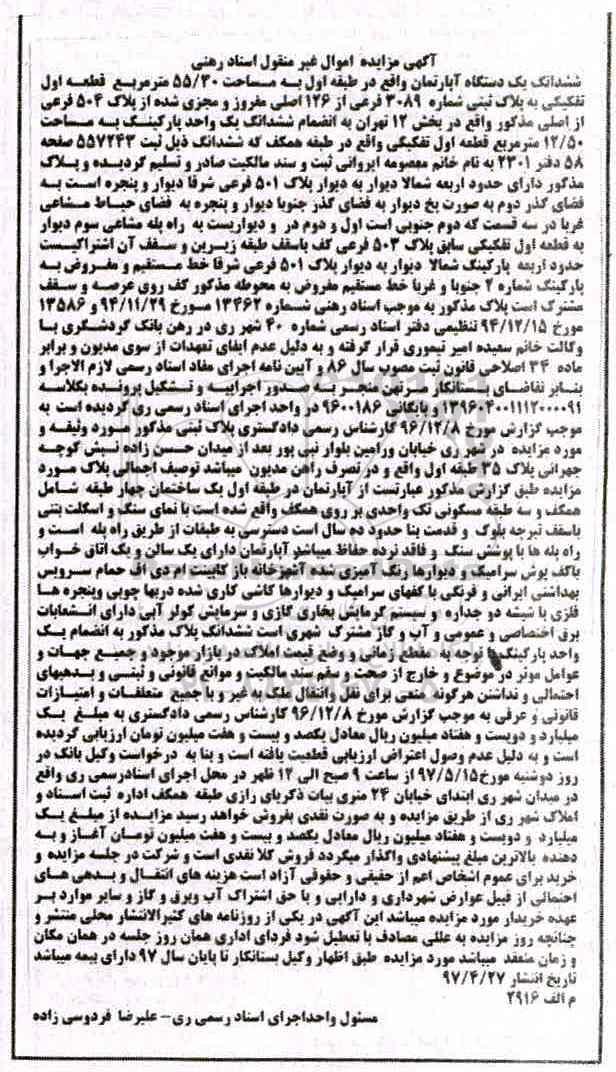 آگهی مزایده اموال غیر منقول اسناد رهنی
ششدانگ یک دستگاه آپارتمان واقع در طبقه اول به مساحت ۵۵/۳۰ مترمربع قطعه اول
تفکیکی به پلاک ثبتی شماره ۳۰۸۹ فرعی از ۱۲۶ اصلی مفروز و مجزی شده از پلاک ۵۰۴ فرعی
از اصلی مذکور واقع در بخش ۱۲ تهران به انضمام ششدانگ یک واحد پارکینگ به مساحت
۱۲/۵۰ مترمربع قطعه اول تفکیکی واقع در طبقه همکف که ششدانگ ذیل ثبت ۵۵۷۲۴۳ صفحه
۵۸ دفتر ۲۳۰۱ به نام خانم معصومه ایروانی ثبت و سند مالکیت صادر و تسلیم گردیده و پلاک
مذکور دارای حدود اربعه شمالا دیوار به دیوار پلاک ۵۰۱ فرعی شرقا دیوار و پنجره است به
فضای گذر دوم به صورت پخ دیوار به فضای گذر جنوبا دیوار و پنجره به فضای حیاط مشاعی
غربا در سه قسمت که دوم جنوبی است اول و دوم در و دیواریست به راه پله مشاعی سوم دیوار
به قطعه اول تفکیکی سابق پلاک ۵۰۳ فرعی کف باسقف طبقه زیرین و سقف آن اشتراکیست
حدود اربعه پارکینگ شمالا دیوار به دیوار پلاک ۵۰۱ فرعی شرقا خط مستقیم و مفروض به
پارکینگ شماره ۲ جنوبا و غربا خط مستقیم مفروض به محوطه مذکور کف روی عرصه و سقف
مشترک است پلاک مذکور به موجب اسناد رهنی شماره ۱۳۴۶۲ مورخ ۹۴/۱۱/۲۹ و ۱۳۵۸۶
مورخ ۹۴/۱۲/۱۵ تنظیمی دفتر اسناد رسمی شماره ۴۰ شهر ری در رهن بانک گردشگری با
وکالت خانم سعیده امیر تیموری قرار گرفته و به دلیل عدم ایفای تعهدات از سوی مدیون و برابر
ماده ۳۴ اصلاحی قانون ثبت مصوب سال ۸۶ و آیین نامه اجرای مفاد اسناد رسمی لازم الاجرا و
بنابر تقاضای بستانکار مرتهن منجر به صدور اجراییه و تشکیل پرونده بکلاسه
۱۳۹۶۰۴۰۰۱۱۱۲۰۰۰۰۹۱ و بایگانی ۹۶۰۰۱۸۶ در واحد اجرای اسناد رسمی ری گردیده است به
موجب گزارش مورخ ۹۶/۱۲/۸ کارشناس رسمی دادگستری پلاک ثبتی مذکور مورد وثیقه و
مورد مزایده در شهر ری خیابان ورامین بلوار نبی پور بعد از میدان حسن زاده نبش کوچه
جهرانی پلاک ۳۵ طبقه اول واقع و در تصرف راهن مدیون میباشد توصیف اجمالی پلاک مورد
مزایده طبق گزارش مذکور عبارتست از آپارتمان در طبقه اول یک ساختمان چهار طبقه شامل
همکف و سه طبقه مسکونی تک واحدی بر روی همکف واقع شده است با نمای سنگ و اسکلت بتنی
باسقف تیرچه بلوک و قدمت بنا حدود ده سال است دسترسی به طبقات از طریق راه پله است و
راه پله ها با پوشش سنگ و فاقد نرده حفاظ میباشد آپارتمان دارای یک سالن و یک اتاق خواب
باکف پوش سرامیک و دیوارها رنگ آمیزی شده آشپزخانه باز کابینت ام دی اف حمام سرویس
بهداشتی ایرانی و فرنگی با کفهای سرامیک و دیوارها کاشی کاری شده دربها چوبی وپنجره ها
فلزی با شیشه دو جداره و سیستم گرمایش بخاری گازی و سرمایش کولر آبی دارای انشعابات
برق اختصاصی و عمومی و آب و گاز مشترک شهری است ششدانگ پلاک مذکور به انضمام یک
واحد پارکینگ با توجه به مقطع زمانی و وضع قیمت املاک در بازار موجود و جمیع جهات و
عوامل موثر در موضوع و خارج از صحت و سقم سند مالکیت و موانع قانونی و ثبتی و بدهیهای
احتمالی و نداشتن هرگونه منعی برای نقل وانتقال ملک به غیر و با جمیع متعلقات و امتیازات
قانونی و عرفی به موجب گزارش مورخ ۹۶/۱۲/۸ کارشناس رسمی دادگستری به مبلغ یک
میلیارد و دویست و هفتاد میلیون ریال معادل یکصد و بیست و هفت میلیون تومان ارزیابی گردیده
است و به دلیل عدم وصول اعتراض ارزیابی قطعیت یافته است و بنا به درخواست وکیل بانک در
روز دوشنبه مورخ۹۷/۵/۱۵ از ساعت ۹ صبح الی ۱۲ ظهر در محل اجرای اسنادرسمی ری واقع
در میدان شهر ری ابتدای خیابان ۲۴ متری بیات ذکریای رازی طبقه همکف اداره ثبت اسناد و
املاک شهر ری از طریق مزایده و به صورت نقدی بفروش خواهد رسید مزایده از مبلغ یک
میلیارد و دویست و هفتاد میلیون ریال معادل یکصد و بیست و هفت میلیون تومان آغاز و به
دهنده بالاترین مبلغ پیشنهادی واگذار میگردد فروش کلا نقدی است و شرکت در جلسه مزایده و
خرید برای عموم اشخاص اعم از حقیقی و حقوقی آزاد است هزینه های انتقال و بدهی های
احتمالی از قبیل عوارض شهرداری و دارایی و یا حق اشتراک آب وبرق و گاز و سایر موارد بر
عهده خریدار مورد مزایده میباشد این آگهی در یکی از روزنامه های کثیرالانتشار محلی منتشر و
چنانچه روز مزایده به عللی مصادف با تعطیل شود فردای اداری همان روز جلسه در همان مکان
و زمان منعقد میباشد مورد مزایده طبق اظهار وکیل بستانکار تا پایان سال ۹۷ دارای بیمه میباشد
تاریخ انتشار ۹۷/۴/۲۷
م الف ۲۹۱۶
مسئول واحداجرای اسناد رسمی ری- علیرضا فردوسی زاده